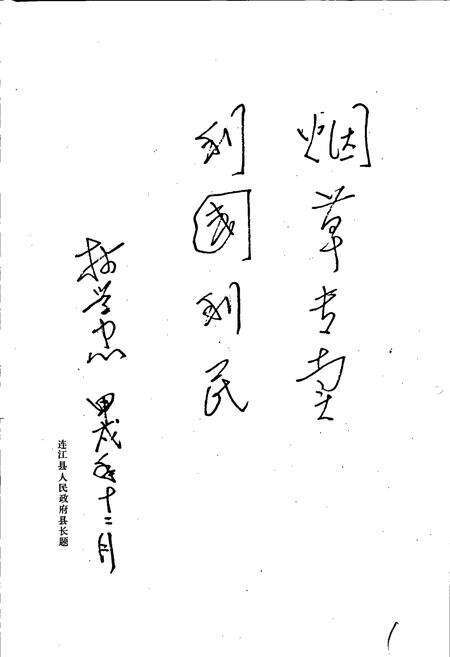 烟草专卖
利國利民
林学忠 甲戌年十二月
连江县人民政府县长题